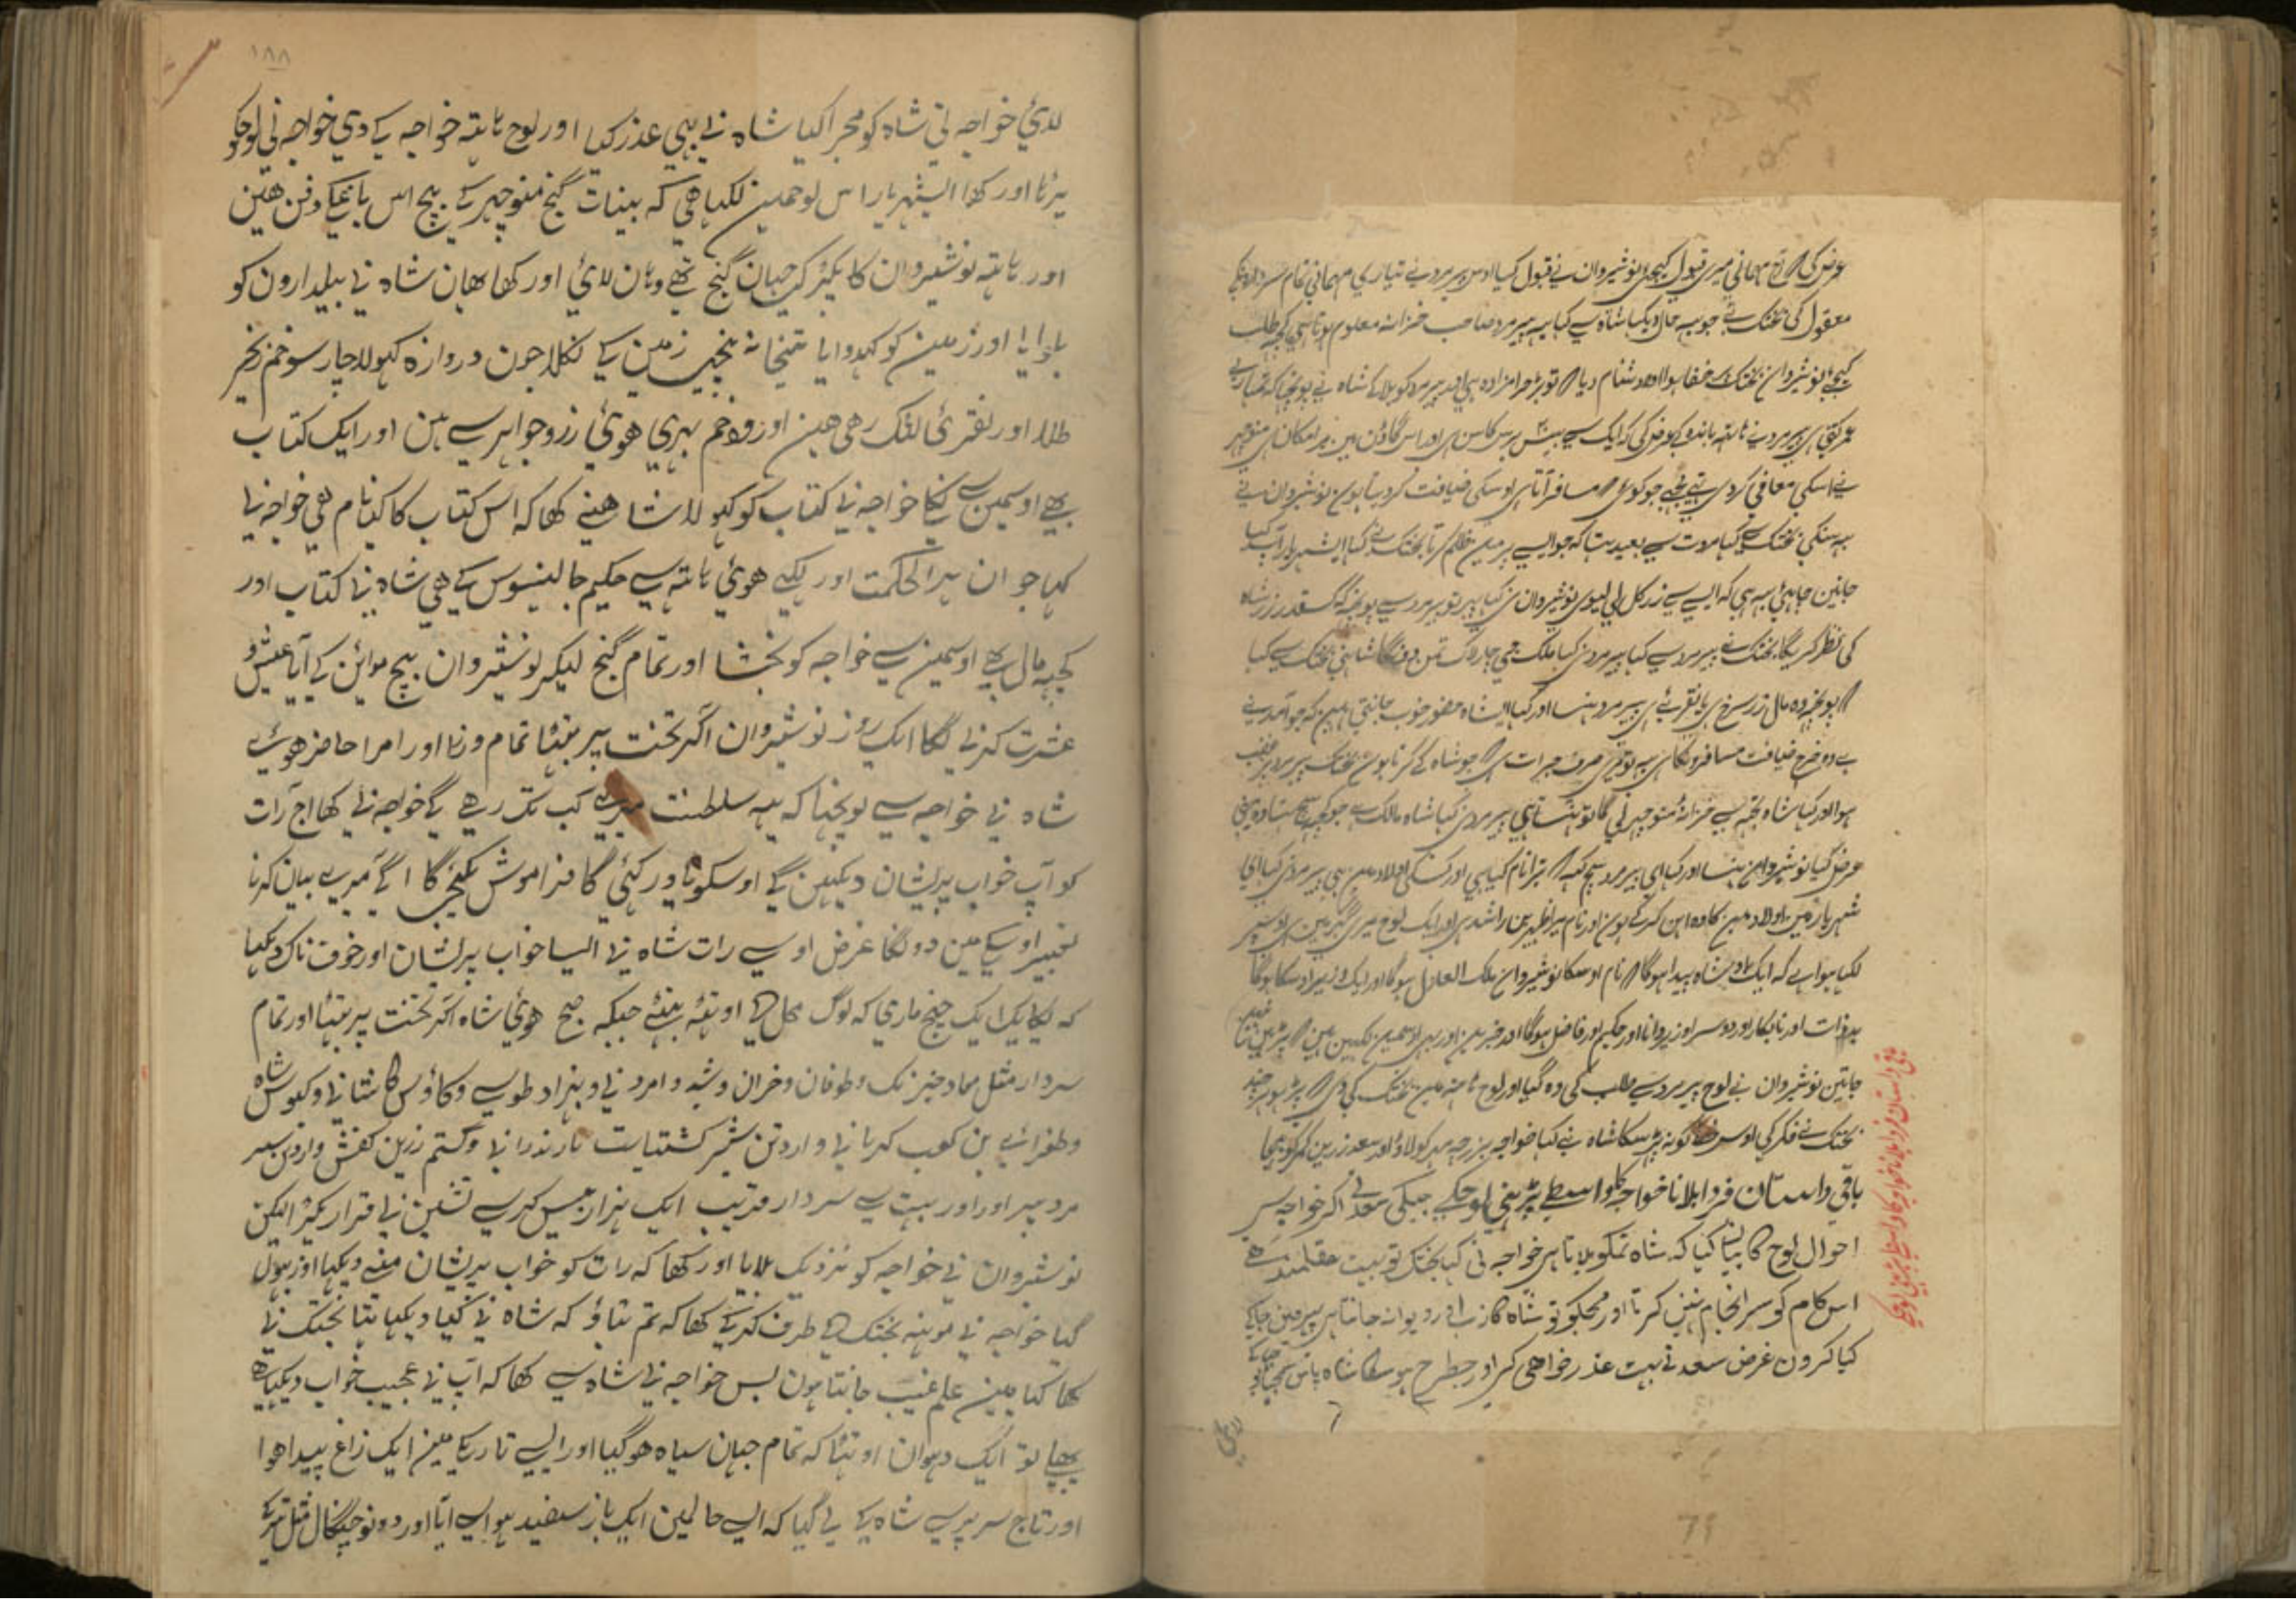 عرض کی آج مہمانی میری قبول کیجئے نوشیروان نے قبول کیا اوس پیر مرد نے تیاری مہمانی تمام
معقول کی بختک نے جو یہ حال دیکہا شاہ سے کہا یہ پیر مرد صاحب خزانہ معلوم ہوتا ہی کچہ طلب
کیجئے نوشیروان بختک پر خفا ہوا اور دشنام دیا تو بڑا حرامزادہ ہی اور پیر مرد کو بلا کے شاہ نے پوچہا کہ تمہاری
عمر کتنی ہی پیر مرد نے ہاتہ باندہ کے عرض کی کہ ایک سے بیس برس کا سن ہی اور اس گاؤن مین میرا مکان ہی منوچہر
نے اسکی معافی کر دی تہی مجہے جو کوئی مسافر آتا ہی اوسکی ضیافت کر دیتا ہون نوشیروان نے
بختک سے کہا مروت سے بعید تہا کہ جو ایسے پر مین ظلم کرتا بختک نے کہا ای شہریار آپ کیا
جانین چاہئے یہ ہی کہ ایسے سے زر کل لے لیوی نوشیروان نی کہا پہر تو پیر مرد سے پوچہ کہ کسقدر زر شاہ
کی نظر کریگا بختک نے پیر مرد سے کہا پیر مرد نی کہا ملک جی چار لاک تمن دونگا شاہ نی بختک سے کہا
پوچہ وہ مال زر سرخ ہی یا نقرئی ہی پیر مرد ہنسا اور کہا ای شاہ حضور خوب جانتی ہین کہ جو آمدنے
ہے وہ خرچ ضیافت مسافرونکا ہی یہ تو میری صرف جرات ہی جو شاہ کے کرتا ہون بختک پیر مرد پر غضب
ہوا اور کہا شاہ تجہ سے خزانہ منوچہر لے گا تو ہنستا ہی پیر مرد نی کہا شاہ مالک ہے جو کچہ سچ تہا وہ مینی
عرض کیا نوشیروان ہنسا اور کہا ای پیر مرد سچ کہہ تیرا نام کیا ہی اور کسکی اولاد مین ہی پیر مرد نی کہا ای
شہریار مین اولاد مین کاوہ آہن گر کے ہون اور نام میرا ہی اور ایک لوح میری گہر مین ہی اوس پر
لکہا ہوا ہے کہ ایک بادشاہ پیدا ہوگا نام اوسکا نوشیروان ملک العادل ہوگا اور ایک وزیر اوسکا ہوگا
بد ذات اور نابکار اور دوسرا وزیر دانا اور حکیم اور فاضل ہوگا اور خبرین اور بہی اوسمین لکہین ہین پڑہی نہین
جاتین نوشیروان نے لوح پیر مرد سے طلب کی وہ گیا اور لوح ہاتہ مین بختک کی دی پڑہو ہر چند
بختک نے فکر کی اوس خط کو نہ پڑہ سکا شاہ نے کہا خواجہ بزرجمہر کو لاؤ اور سعد زرین کمر کو بہیجا
باقی داستان فردا بلانا خواجہ کا واسطے پڑہنی لوح کے جبکی سعد نے آکر خواجہ سے
احوال لوح کا بیان کیا کہ شاہ تمکو بلاتا ہی خواجہ نی کہا بختک تو بہت عقلمند ہے
اس کام کو سرانجام نہین کرتا اور مجکو تو شاہ کاذب اور دیوانہ جانتا ہی پہر مین جاکے
کیا کرون غرض سعد نے بہت عذر خواہی کی اور جسطرح ہو سکا شاہ پاس
باقی داستان فردا بلانا خواجہ کا واسطے پڑہنی لوح کے
لائی
79
۱۸۸
لائی خواجہ نی شاہ کو مجرا کیا شاہ نے بہی عذر کیا اور لوح ہاتہ خواجہ کے دی خواجہ نی لوح کو
پڑہا اور کہا ای شہریار اس لوحمین لکہا ہی کہ بینات گنج منوچہر کے بیچ اس باغکے دفن ہین
اور ہاتہ نوشیروان کا پکڑ کر جہان گنج تہے وہان لائی اور کہا یہان شاہ نی بیلدارون کو
بلوایا اور زمین کو کہدوایا تہخانہ نیچے زمین کے نکلا جون دروازہ کہولا چار سو خم زنجیر
طلا اور نقرئی لٹک رہی ہین اور وہ خم بہری ہوئی زر و جواہر سے ہین اور ایک کتاب
بہے اوسمین سے نکلی خواجہ نے کتاب کو کہولا شاہنے کہا کہ اس کتاب کا کیا نام ہی خواجہ نے
کہا جوان ہیرا الحکمت اور لکہے ہوئی ہاتہ سے حکیم جالینوس کے ہی شاہ نے کتاب اور
کچہ مال بہے اوسمین سے خواجہ کو بخشا اور تمام گنج لیکر نوشیروان بیچ مدائن کے آیا عیش و
عشرت کرنے لگا ایک روز نوشیروان آکر تخت پر بیٹہا تمام وزرا اور امرا حاضر ہوئے
شاہ نے خواجہ سے پوچہا کہ یہ سلطنت میرے کب تک رہے گے خواجہ نے کہا آج رات
کو آپ خواب پریشان دیکہین گے اوسکو یاد رکہئے گا فراموش نکیجئے گا آگے میرے بیان کرنا
تعبیر اوسکے مین دونگا غرض اوسے رات شاہ نے ایسا خواب پریشان اور خوف ناک دیکہا
کہ یکایک ایک چیخ ماری کہ لوگ محل کے اوٹہہ بیٹہے جبکہ صبح ہوئی شاہ آکر تخت پر بیٹہا اور تمام
سردار مثل و طوفان و خزان و و بہزاد طوسے و کاؤس کاشانے و کیوس شاہ
و بن کعب کرمانے و اردن شیر مازندرانے و گستم زرین کفش و اردن سیر
مرد میر اور اور بہت سے سردار قریب ایک ہزار بیس کرسے نشین نے قرار پکڑا لیکن
نوشیروان نے خواجہ کو نزدیک بلایا اور کہا کہ رات کو خواب پریشان مینے دیکہا اور بہول
گیا خواجہ نے مونہہ بختک کے طرف کرکے کہا کہ تم بتاؤ کہ شاہ نے کیا دیکہا تہا بختک نے
کہا کیا مین علم غیب جانتا ہون بس خواجہ نے شاہ سے کہا کہ آپ نے عجیب خواب دیکہا ہے
پہلے تو ایک دہوان اوٹہا کہ تمام جہان سیاہ ہوگیا اور ایسے تاریکے مین ایک زاغ پیدا ہوا
اور تاج سر پر سے شاہ کے لے گیا کہ ایسے حالمین ایک باز سفید ہوا سے آیا اور دونو چنگال مثل